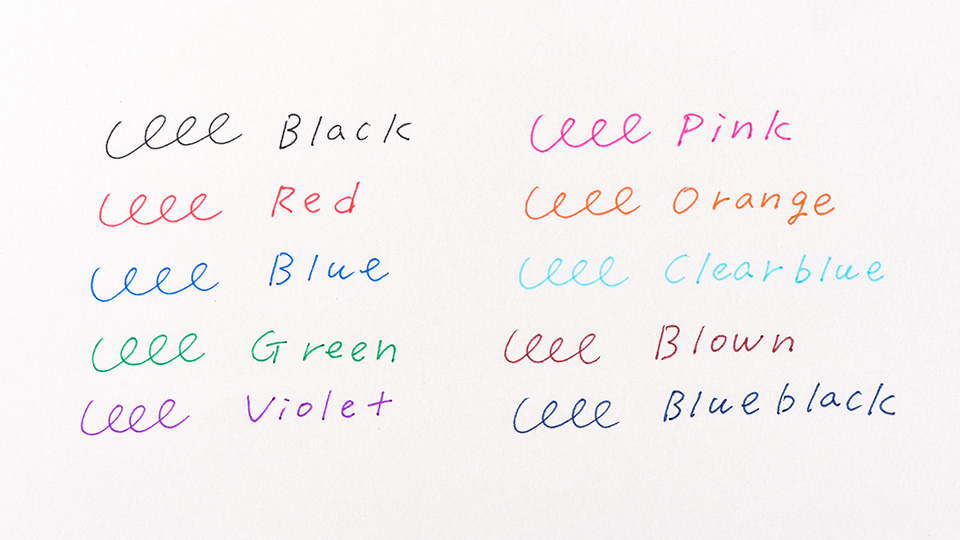 Black
Red
Blue
Green
Violet
Pink
Orange
Clearblue
Blown
Blueblack